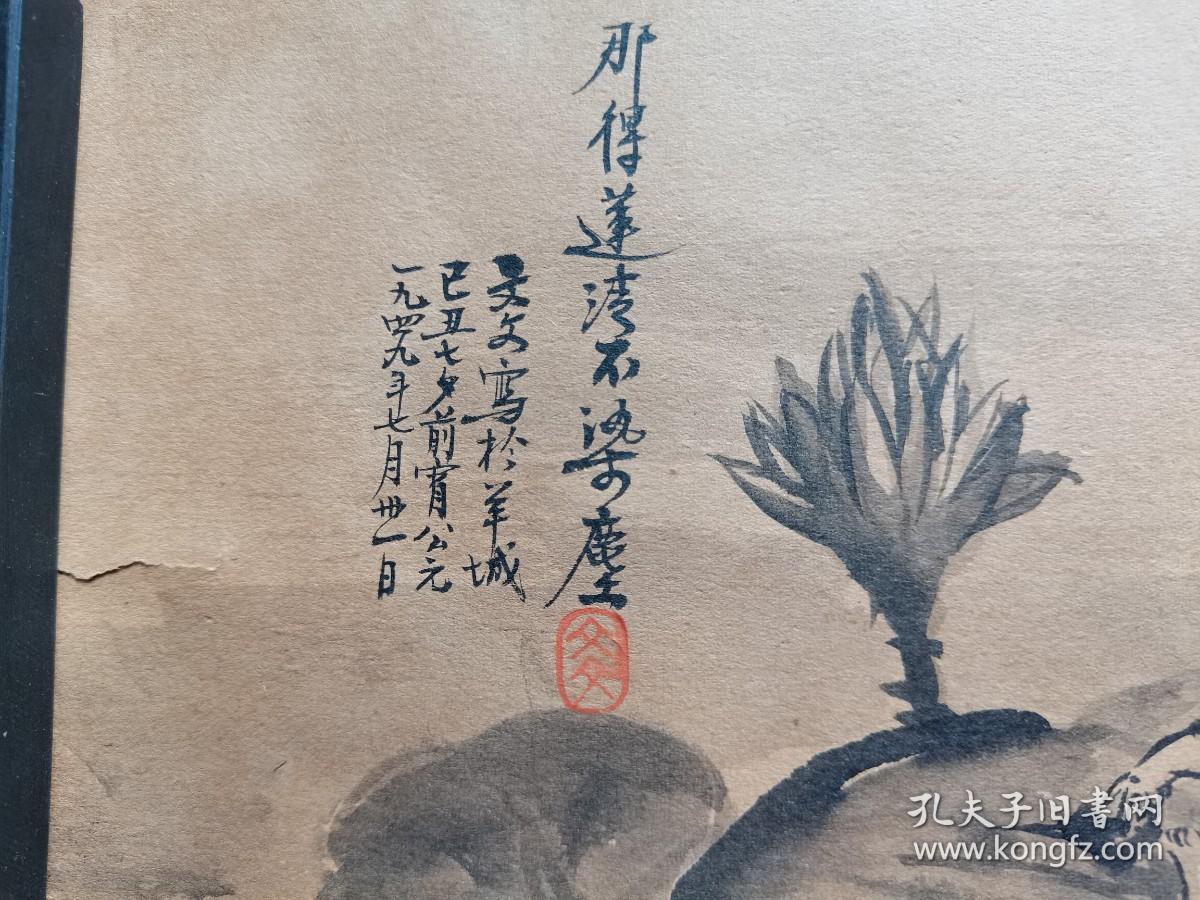 那得莲清不染尘
文文寫於羊城
己丑七夕前宵公元
一九四九年七月卅一日
文文
孔夫子旧书网
www.kongfz.com